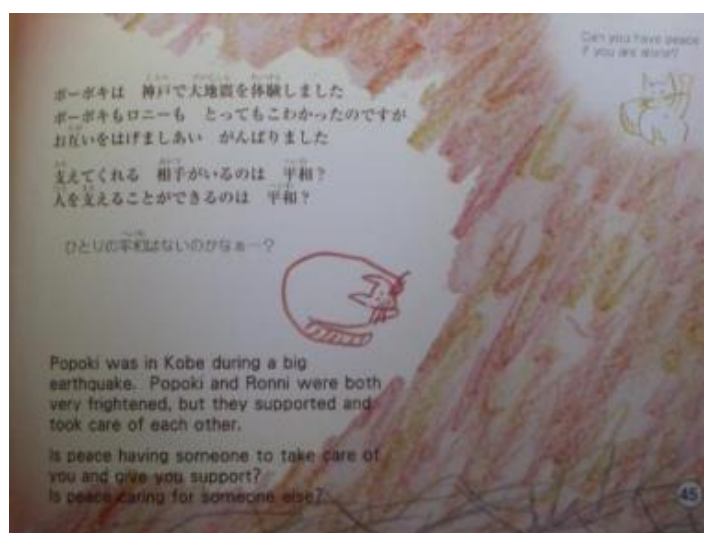 ポーポキは 神戸で大地震を体験しました
ポーポキもロニーも とってもこわかったのですが
お互いをはげましあい がんばりました
支えてくれる 相手がいるのは 平和？
人を支えることができるのは 平和？
ひとりの平和はないのかなぁー？
Can you have peace
if you are alone?
Popoki was in Kobe during a big
earthquake. Popoki and Ronni were both
very frightened, but they supported and
took care of each other.
Is peace having someone to take care of
you and give you support?
Is peace caring for someone else?
45